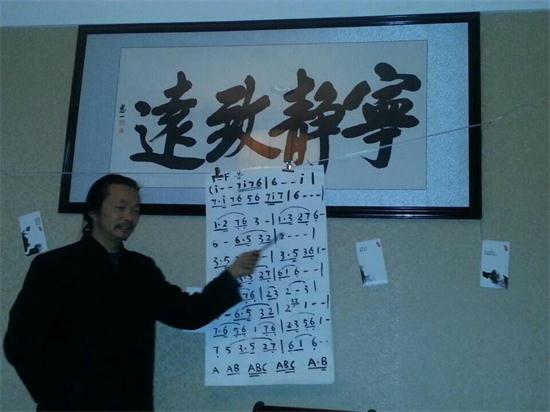 寧靜致遠
1=F
(i - - 7 i 7 6 | 6 - - i |
7·i 7 6 5 6 7 i 7 | 6 - - - |
1·2 7 6 3 - | 1·3 2 7 6 -
6 - 6·5 3 2 | 2 - - - |
3·5 | 3·5 3 6 1 -
3·5 2 7 | 6 1 6 - -
7 6 | 2 3 2 - 3 |
- 6·5 3 2 | 2 - - |
7 6 5 6 1 7 6 | 2 3 5 6 1 -
7 5 3·5 2 7 | 6 1 6 - -
A AB ABC ABC A·B